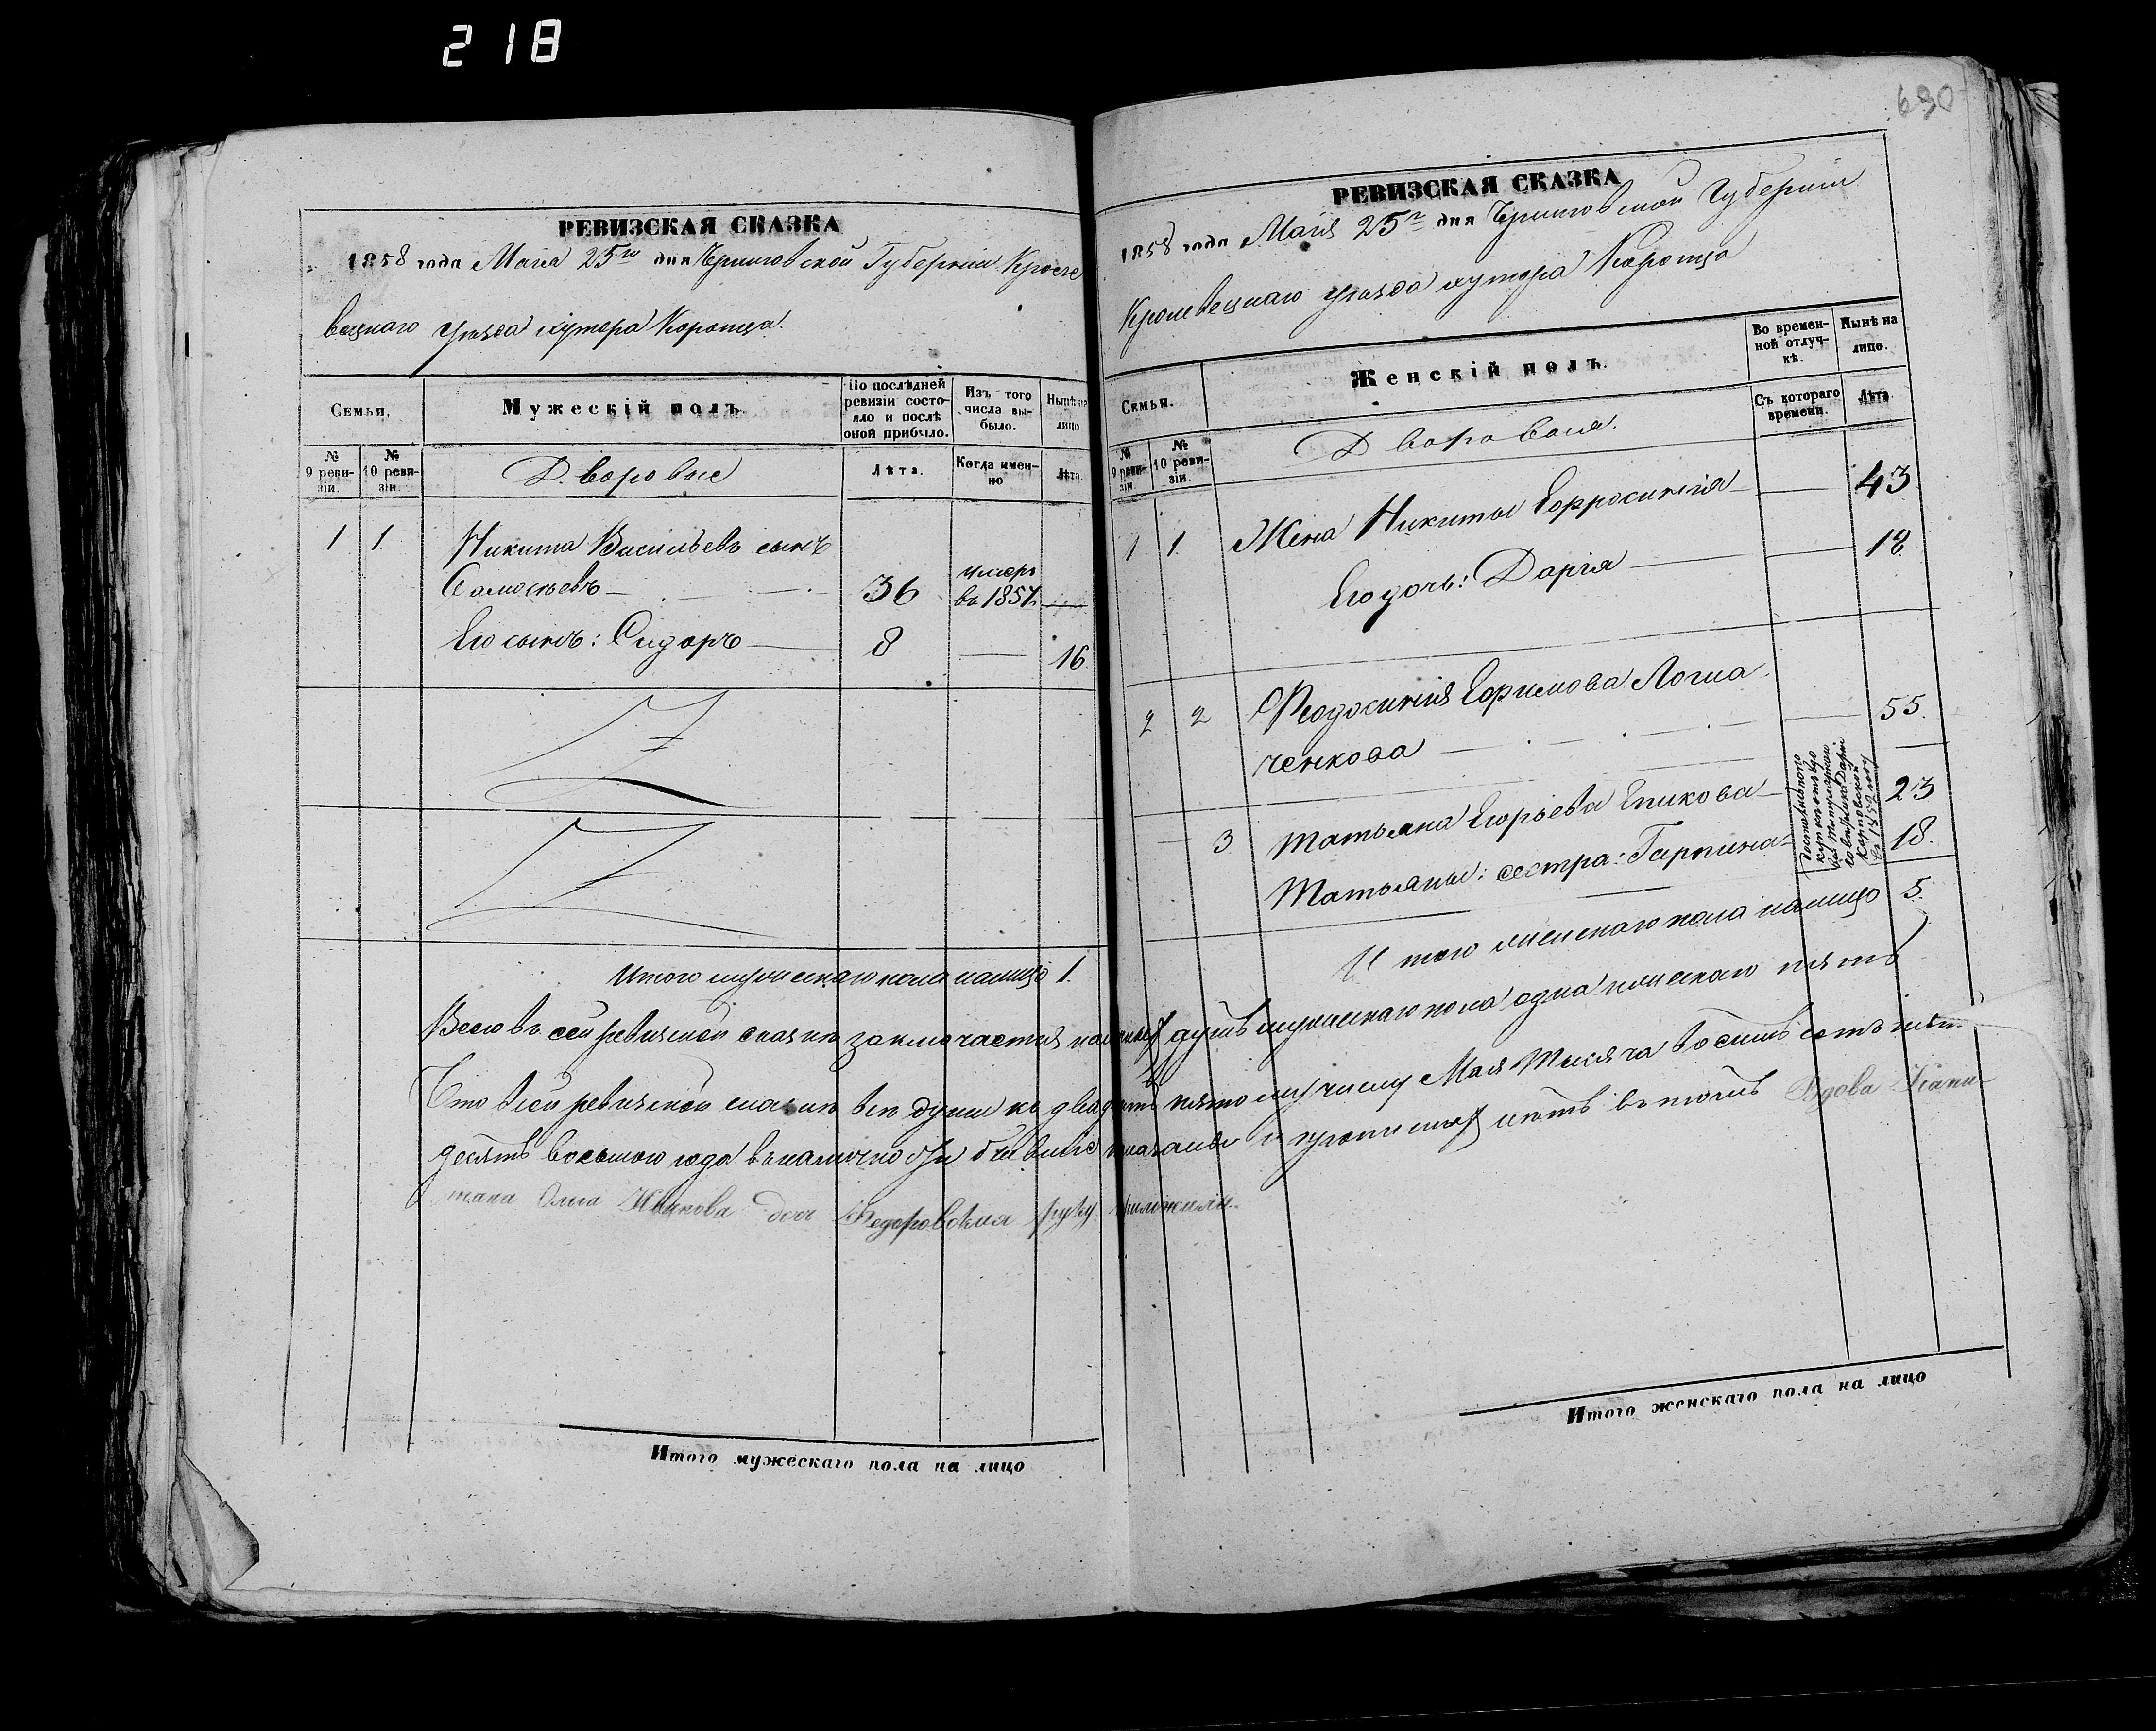 218
630
РЕВИЗСКАЯ СКАЗКА
1858 года Маія 25го дня Черниговской Губерніи Кроле
вецкаго уѣзда хутора Коропца.
Семьи,
Мужескій полъ.
По послѣдней ревизіи состо-
яло и послѣ
оной прибыло.
Изъ того
числа вы-
было.
Нынѣ на
лицо
№
9 реви-
зіи.
№
10 реви-
зіи.
Дворовые
Лѣта.
Когда имен-
но
Лѣта.
1 1 Никита Васильевъ сынъ
36 умеръ
въ 1857.
Его сынъ: Сидоръ 8 — 16.
Итого мужескаго пола налицо 1.
РЕВИЗСКАЯ СКАЗКА
1858 года Маія 25го дня Черниговской Губерніи
Кролевецкаго уѣзда хутора Коропца
Семьи.
Женскій полъ.
Во времен-
ной отлуч-
кѣ.
Нынѣ на
лицо.
Съ котораго
времени.
Лѣта.
№
9 реви-
зіи
№
10 реви-
зіи.
Дворовыя.
1 1. Жена Никиты Ефросинія — 43
Его дочь: Дарія — 18
2 2 Феодосинія Ефимова Логва
ченкова — 55.
— 3 Татьяна Егорьева — 23
Татьяны: сестра: Гарпина 18.
Итого женскаго пола налицо 5.
Всего въ сей ревизской сказкѣ заключается наличныхъ душъ мужескаго пола одна женскаго пять
Что въ сей ревизской сказкѣ всѣ души къ двадцать пятому числу Мая Тысяча восемь сотъ пять
десятъ восьмого года въ наличности бывшіе показаны и прописныхъ нѣтъ въ томъ Вдова Капи-
тана Ольга дочь Федоровская руку приложила.
Итого мужескаго пола на лицо
Итого женскаго пола на лицо